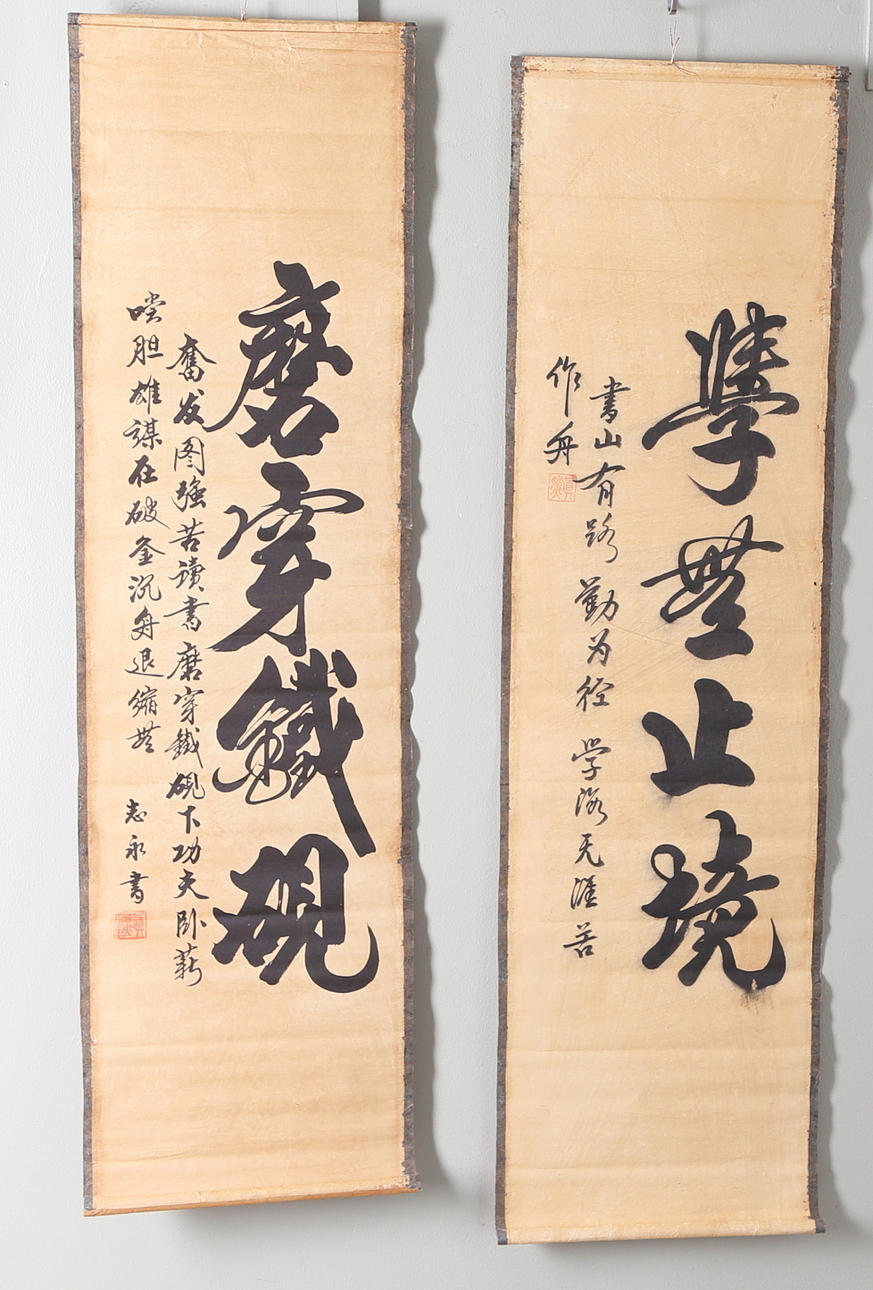 學無止境
書山有路勤为径学海无涯苦
作舟
磨穿鐵硯
奮发图强苦读書磨穿鐵硯下功夫卧薪
嘗胆雄谋在破釜沉舟退缩無
志永書